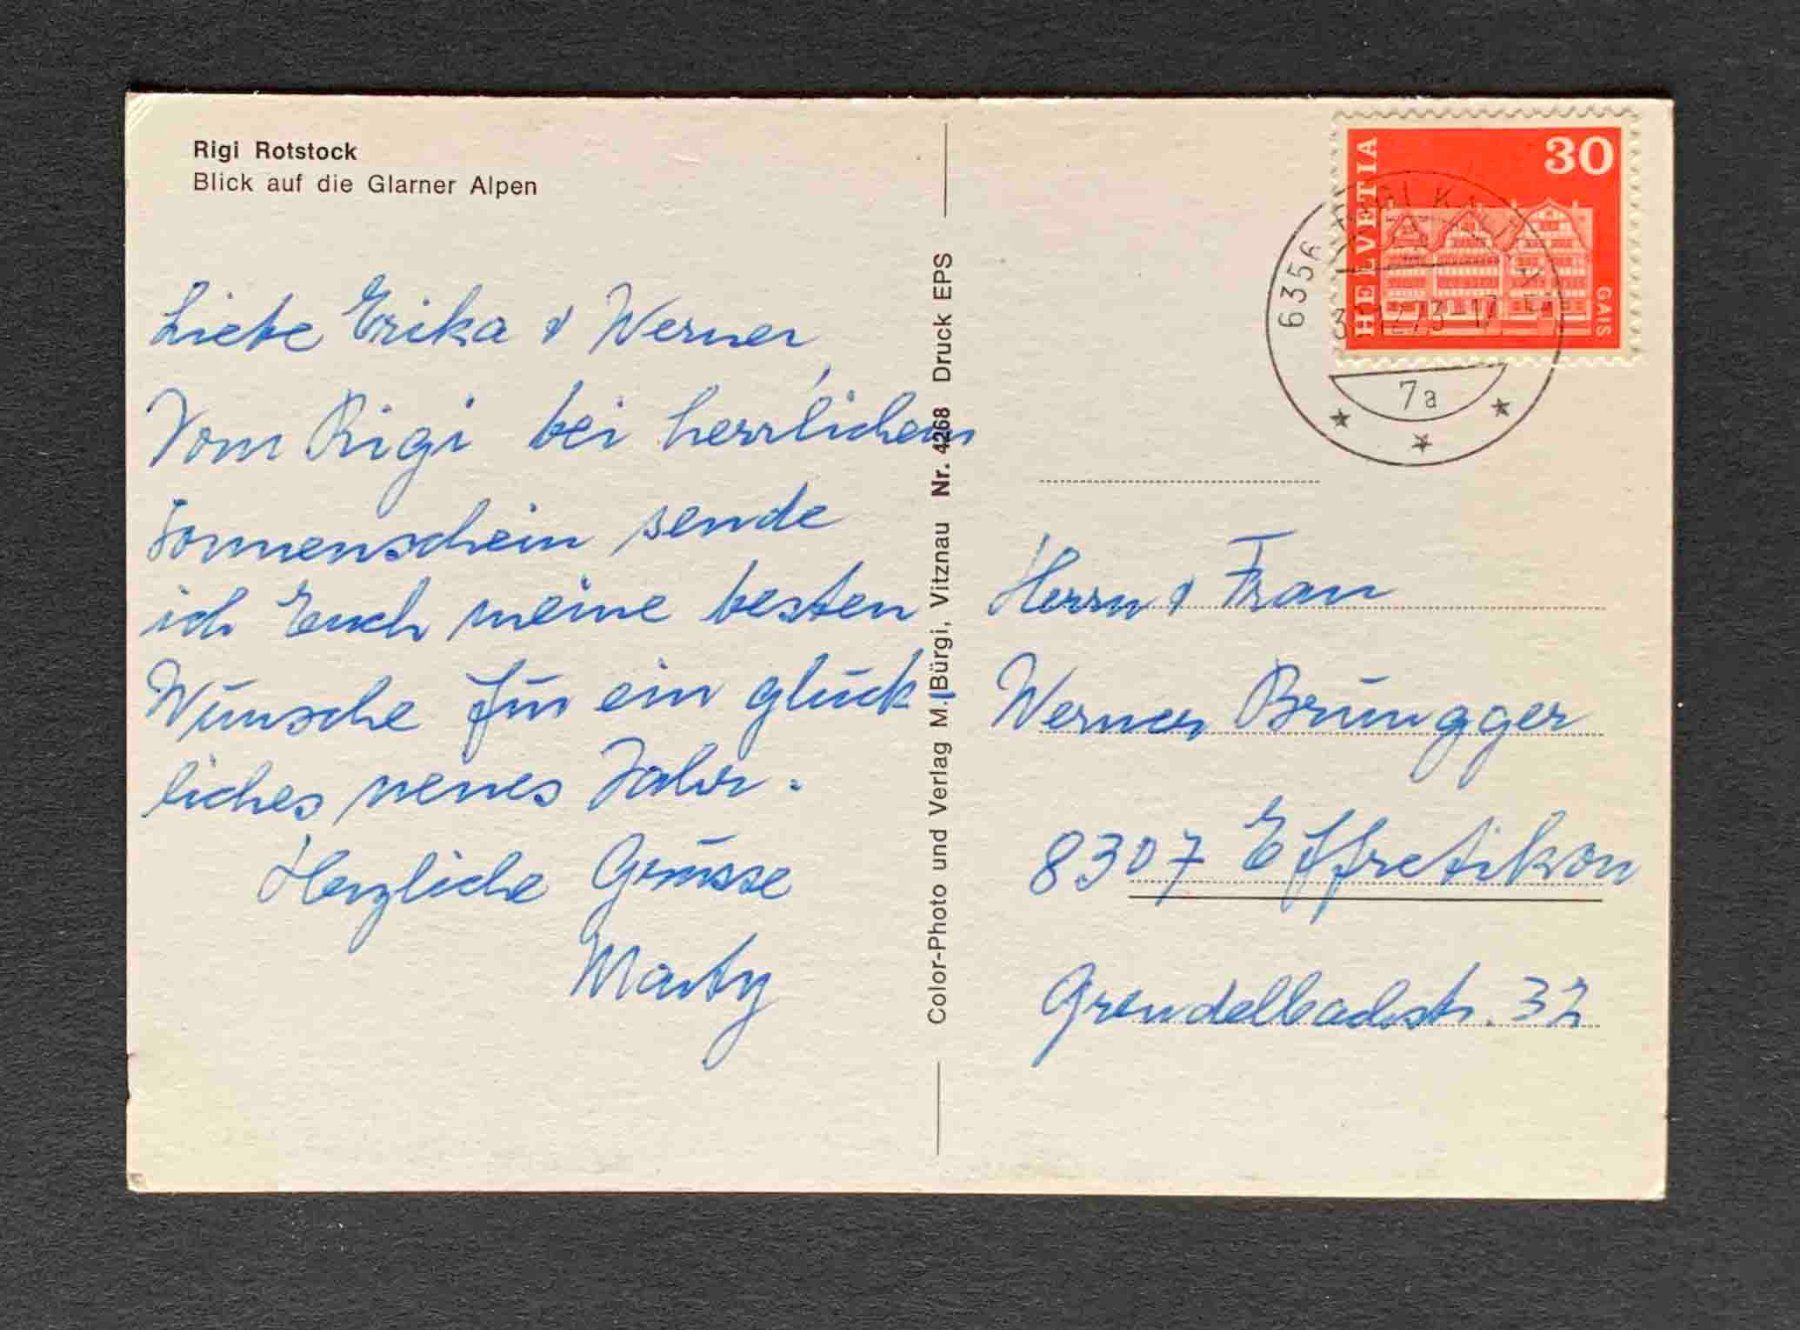 Rigi Rotstock
Blick auf die Glarner Alpen
Liebe Erika & Werner,
Vom Rigi bei herrlichem
Sonnenschein sende
ich Euch meine besten
Wünsche für ein glück-
liches neues Jahr.
Herzliche Grüsse
Marty
Color-Photo und Verlag M. Bürgi, Vitznau Nr. 4268 Druck EPS
HELVETIA
30
GAIS
6356
7a
Herrn & Frau
Werner Brüngger
8307 Effretikon
Grendelbachstr. 32